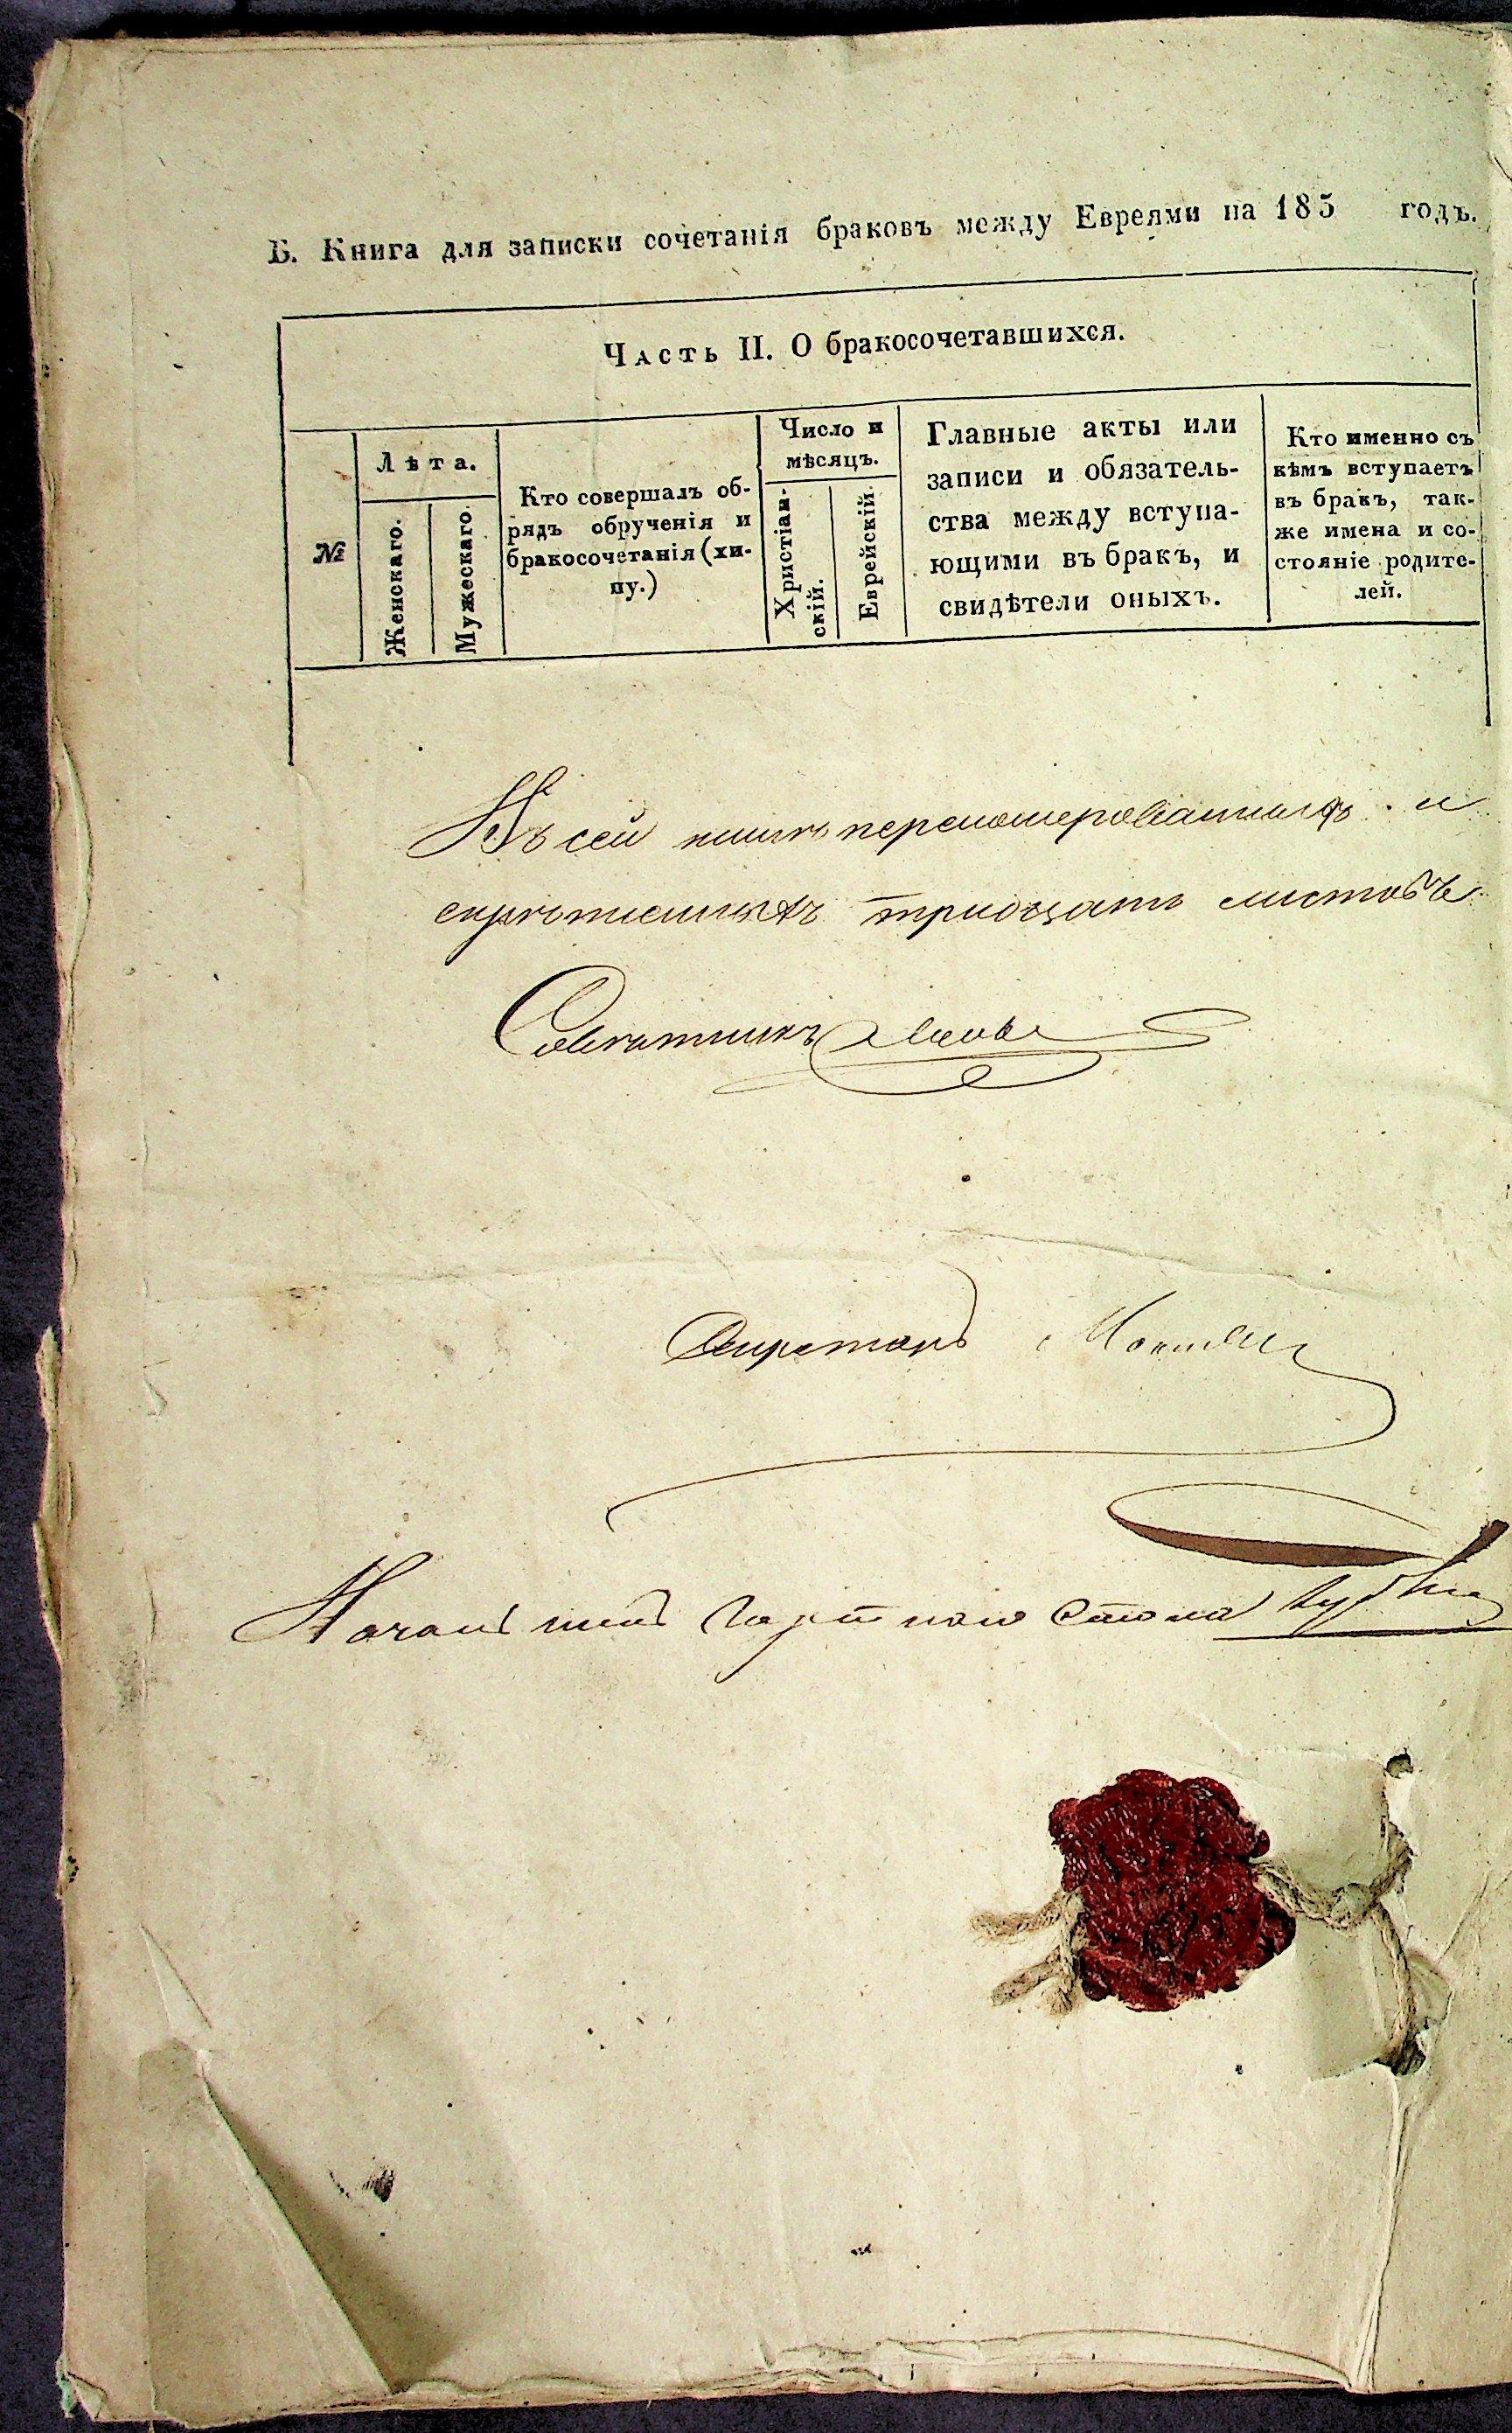 Б. Книга для записки сочетанія браковъ между Евреями на 185 годъ.
Часть II. О бракосочетавшихся.
№
Лѣта.
Женскаго.
Мужескаго.
Кто совершалъ об-
рядъ обрученія и
бракосочетанія (хи-
пу.)
Число и
мѣсяцъ.
Христіан-
скій.
Еврейскій.
Главные акты или
записи и обязатель-
ства между вступа-
ющими въ бракъ, и
свидѣтели оныхъ.
Кто именно съ
кѣмъ вступаетъ
въ бракъ, так-
же имена и со-
стояніе родите-
лей.
Въ сей книгѣ перенумерованныхъ и
скрѣпленныхъ тридцать листовъ
Совѣтникъ
Секретарь
Начальникъ Стола